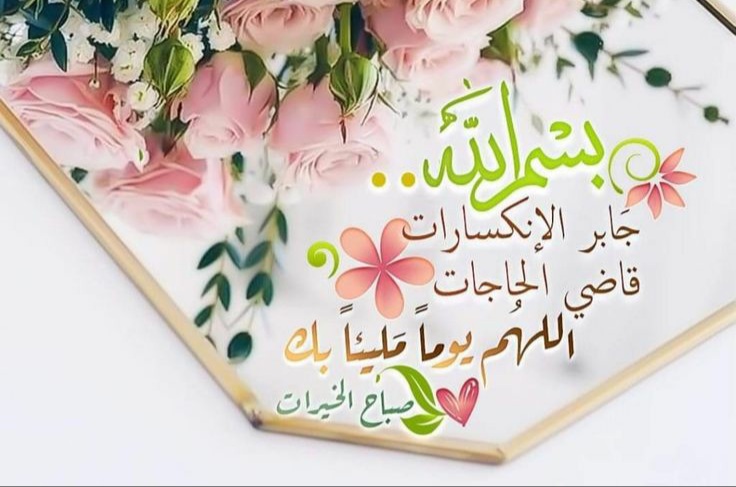 بِسْمِ اللَّه..
جَابر الإنكسارات
قاضي الحاجات
اللهُم يوماً مَليئاً بك
صباح الخيرات